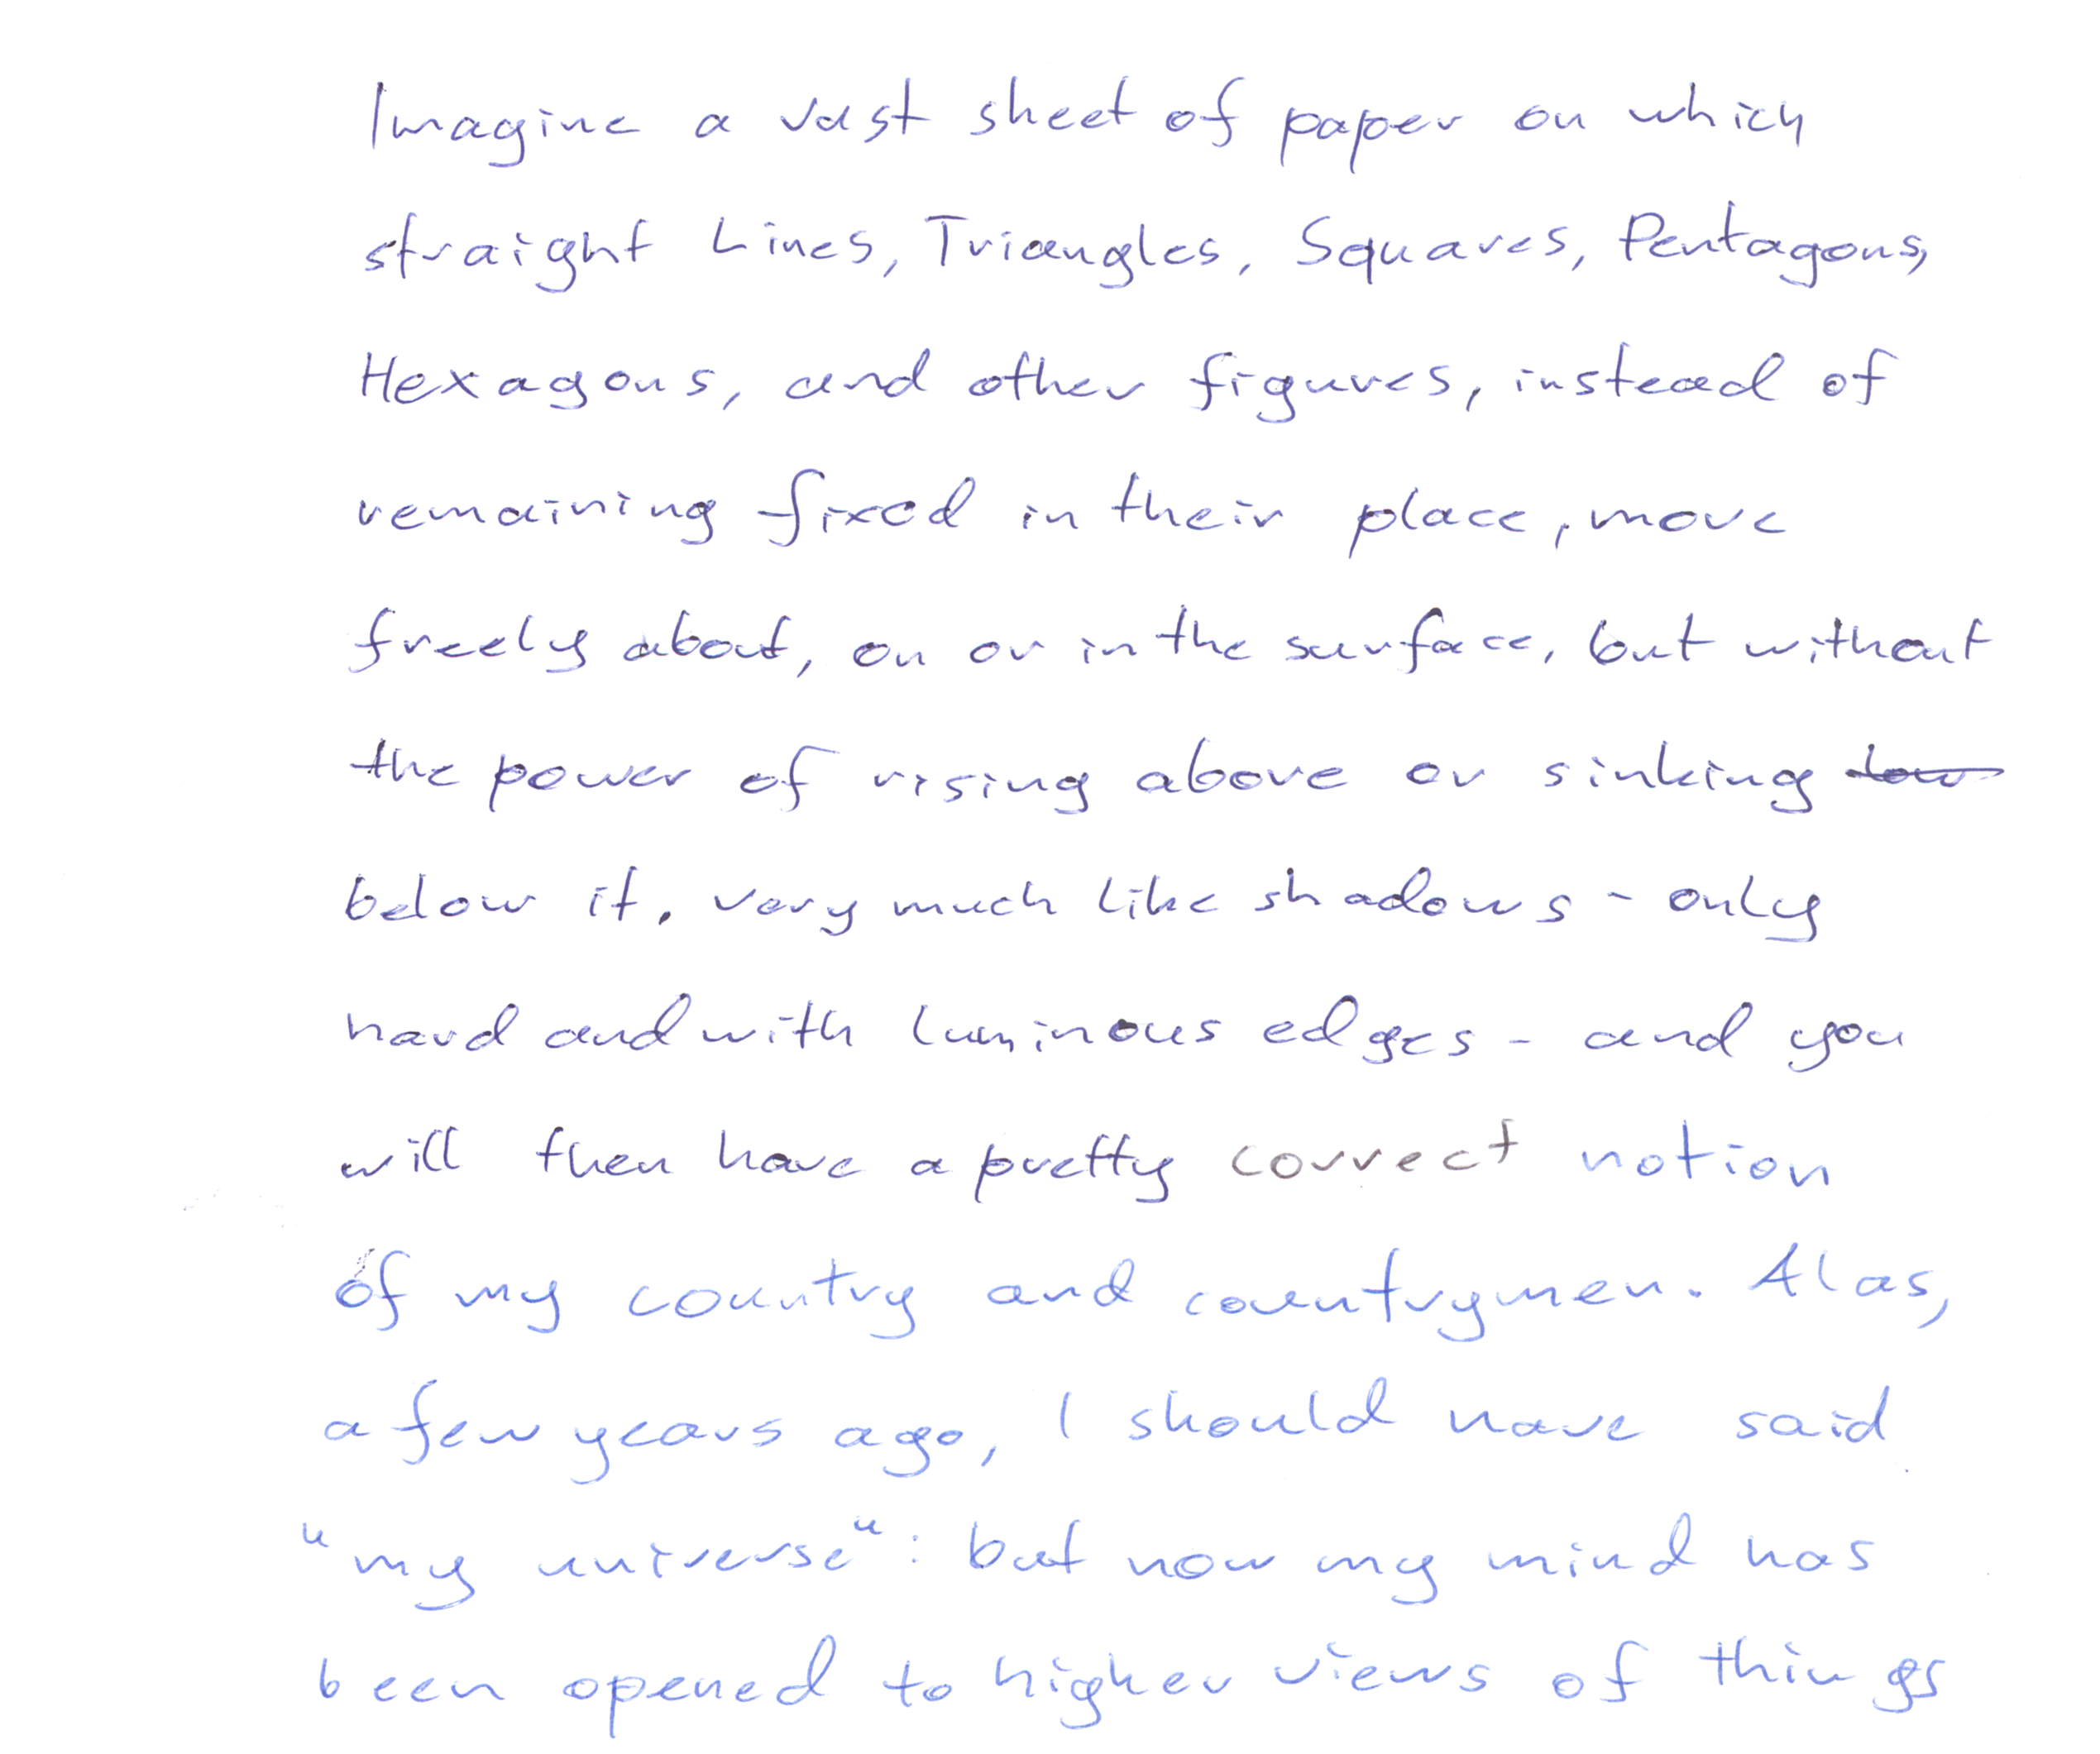 Imagine a vast sheet of paper on which
straight Lines, Triangles, Squares, Pentagons,
Hexagons, and other figures, instead of
remaining fixed in their place, move
freely about, on or in the surface, but without
the power of rising above or sinking
below it, very much like shadows - only
hard and with luminous edges - and you
will then have a pretty correct notion
of my country and countrymen. Alas,
a few years ago, I should have said
"my universe": but now my mind has
been opened to higher views of things